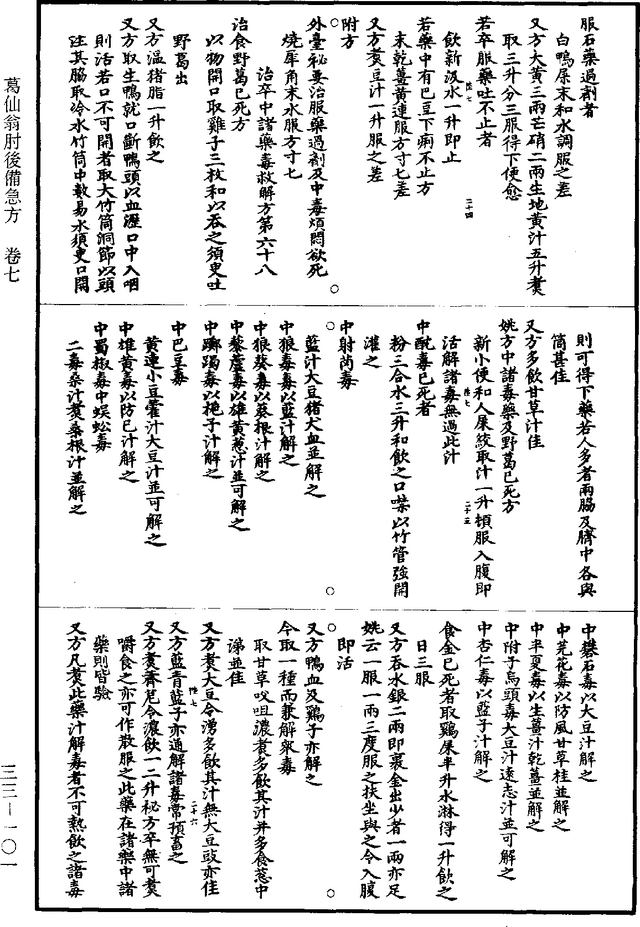 服石藥過劑者
白鴨屎末和水調服之差
又方大黃三兩芒硝二兩生地黃汁五升煑
取三升分三服得下便愈
若卒服藥吐不止者
飲新汲水一升即止
若藥中有巴豆下痢不止方
末乾薑黃連服方寸七差
又方煑豆汁一升服之差
附方
外臺秘要治服藥過劑及中毒煩悶欲死
燒犀角末水服方寸七
治卒中諸藥毒救解方第六十八
治食野葛已死方
以物開口取雞子三枚和以吞之須臾吐
野葛出
又方溫猪脂一升飲之
又方取生鴨就口斷鴨頭以血瀝口中入咽
則活若口不可開者取大竹筒洞節以頭
注其脇取冷水竹筒中數易水須臾口開
則可得下藥若人多者兩脇及臍中各與
筒甚佳
又方多飲甘草汁佳
姚方中諸毒藥及野葛已死方
新小便和人屎絞取汁一升頓服入腹即
活解諸毒無過此汁
中酖毒已死者
粉三合水三升和飲之口噤以竹管強開
灌之
中射䒷毒
藍汁大豆猪犬血並解之
中狼毒毒以藍汁解之
中狼葵毒以葵根汁解之
中藜蘆毒以雄黃葱汁並可解之
中躑躅毒以梔子汁解之
中巴豆毒
黃連小豆藿汁大豆汁並可解之
中雄黃毒以防已汁解之
中蜀椒毒中蜈蚣毒
二毒桑汁煑桑根汁並解之
中礬石毒以大豆汁解之
中芫花毒以防風甘草桂並解之
中半夏毒以生薑汁乾薑並解之
中附子烏頭毒大豆汁遠志汁並可解之
中杏仁毒以藍子汁解之
食金已死者取鷄屎半升水淋得一升飲之
日三服
又方吞水銀二兩即裹金出少者一兩亦足
姚云一服一兩三度服之扶坐與之令入腹
即活
又方鴨血及鷄子亦解之
今取一種而兼解衆毒
取甘草㕮咀濃煑多飲其汁并多食葱中
涕並佳
又方煑大豆令湧多飲其汁無大豆豉亦佳
又方藍青藍子亦通解諸毒常預畜之
又方煑薺苨令濃飲一二升秘方卒無可煑
嚼食之亦可作散服之此藥在諸藥中諸
藥則皆驗
又方凡煑此藥汁解毒者不可熱飲之諸毒
葛仙翁肘後備急方 卷七
三三—一〇一